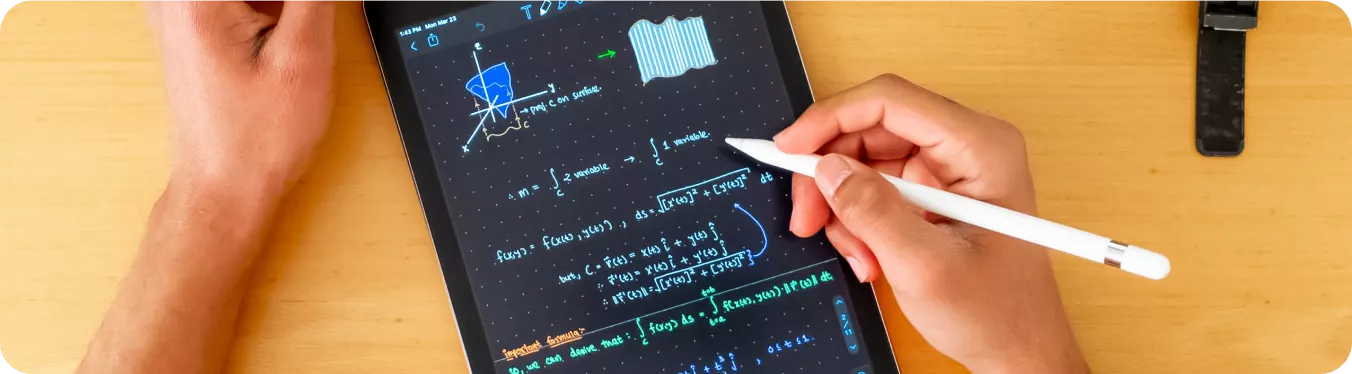 1:43 PM Mon Mar 23
z
y
x
c
→ proj. C on surface.
∴ m = ∫_C 2 variable → ∫_C 1 variable.
f(x,y) = f(x(t), y(t)) , ds = √([x'(t)]² + [y'(t)]²) dt
but, C = r⃗(t) = x(t) î + y(t) ĵ
∴ r⃗'(t) = x'(t) î + y'(t) ĵ
∴ ||r⃗'(t)|| = √([x'(t)]² + [y'(t)]²)
important formula:-
so, we can derive that: ∫_C f(x,y) ds = ∫_{t=a}^{t=b} f(x(t), y(t)) · ||r⃗'(t)|| dt
2/11
î + t³ ĵ , 0 ≤ t ≤ 1.